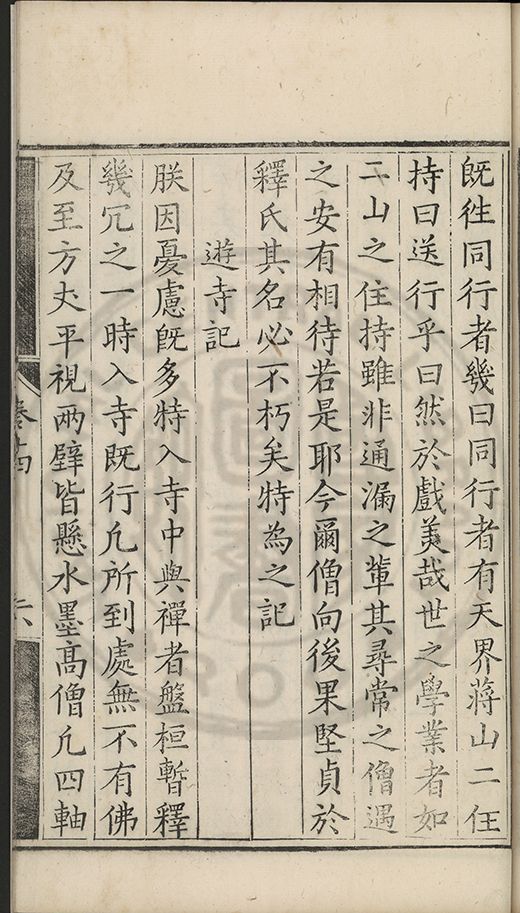 旣徃同行者幾曰同行者有天界蔣山二住
持曰送行乎曰然於戲美哉世之學業者如
二山之住持雖非通漏之輩其尋常之僧遇
之安有相待若是耶今爾僧向後果堅貞於
釋氏其名必不朽矣特為之記
遊寺記
朕因憂慮旣多特入寺中與禪者盤桓暫釋
幾冗之一時入寺既行凢所到處無不有佛
及至方丈平視兩壁皆懸水墨高僧凢四軸
卷十四
六